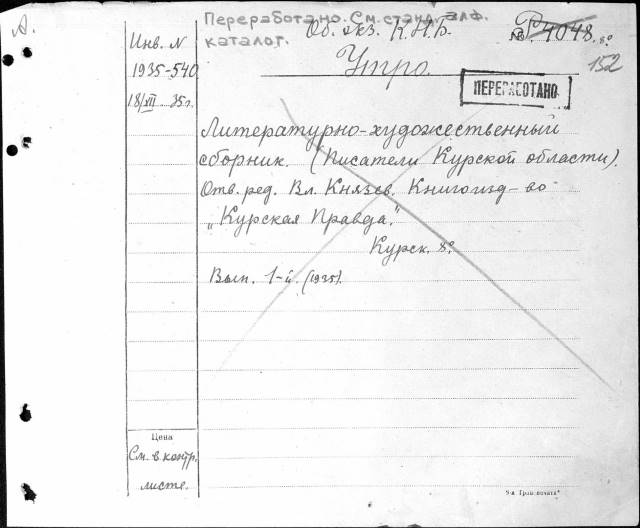 А.
Переработано. См. станд. алф.
каталог.
Об. экз. К.Н.Б.
№ Р. 4048. 8°
152
Инв. N
1935-540
18/VII 35г.
Утро.
ПЕРЕРАБОТАНО
Литературно-художественный
сборник. (Писатели Курской области).
Отв. ред. Вл. Князев. Книгоизд-во
„Курская Правда".
Курск. 8°.
Вып. 1-й. (1935).
Цена
См. в контр.
листе.